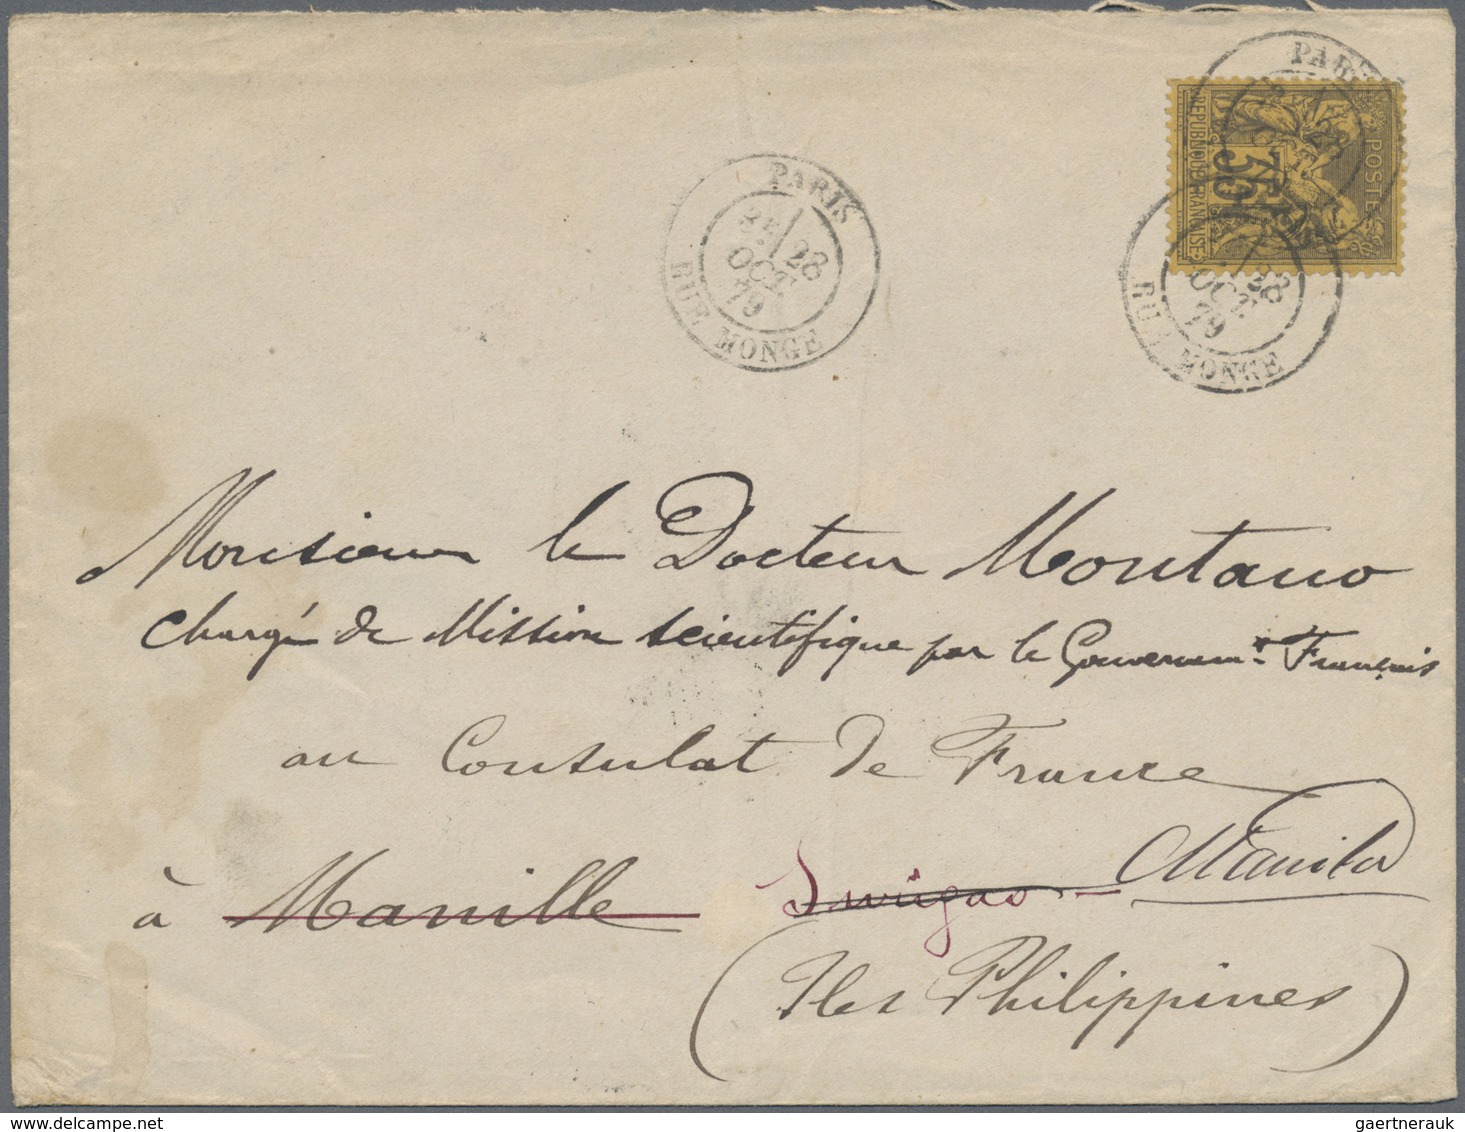 PARIS
3E / 28
OCT.
79
RUE MONGE
PARIS
28
POSTES
35
REPUBLIQUE FRANÇAISE
28
OCT.
79
RUE MONGE
Monsieur le Docteur Montano
chargé de Mission scientifique par le Gouvernemt Français
au Consulat de France
à Manille Surigao - Manila
(Iles Philippines)
gaertnerauk